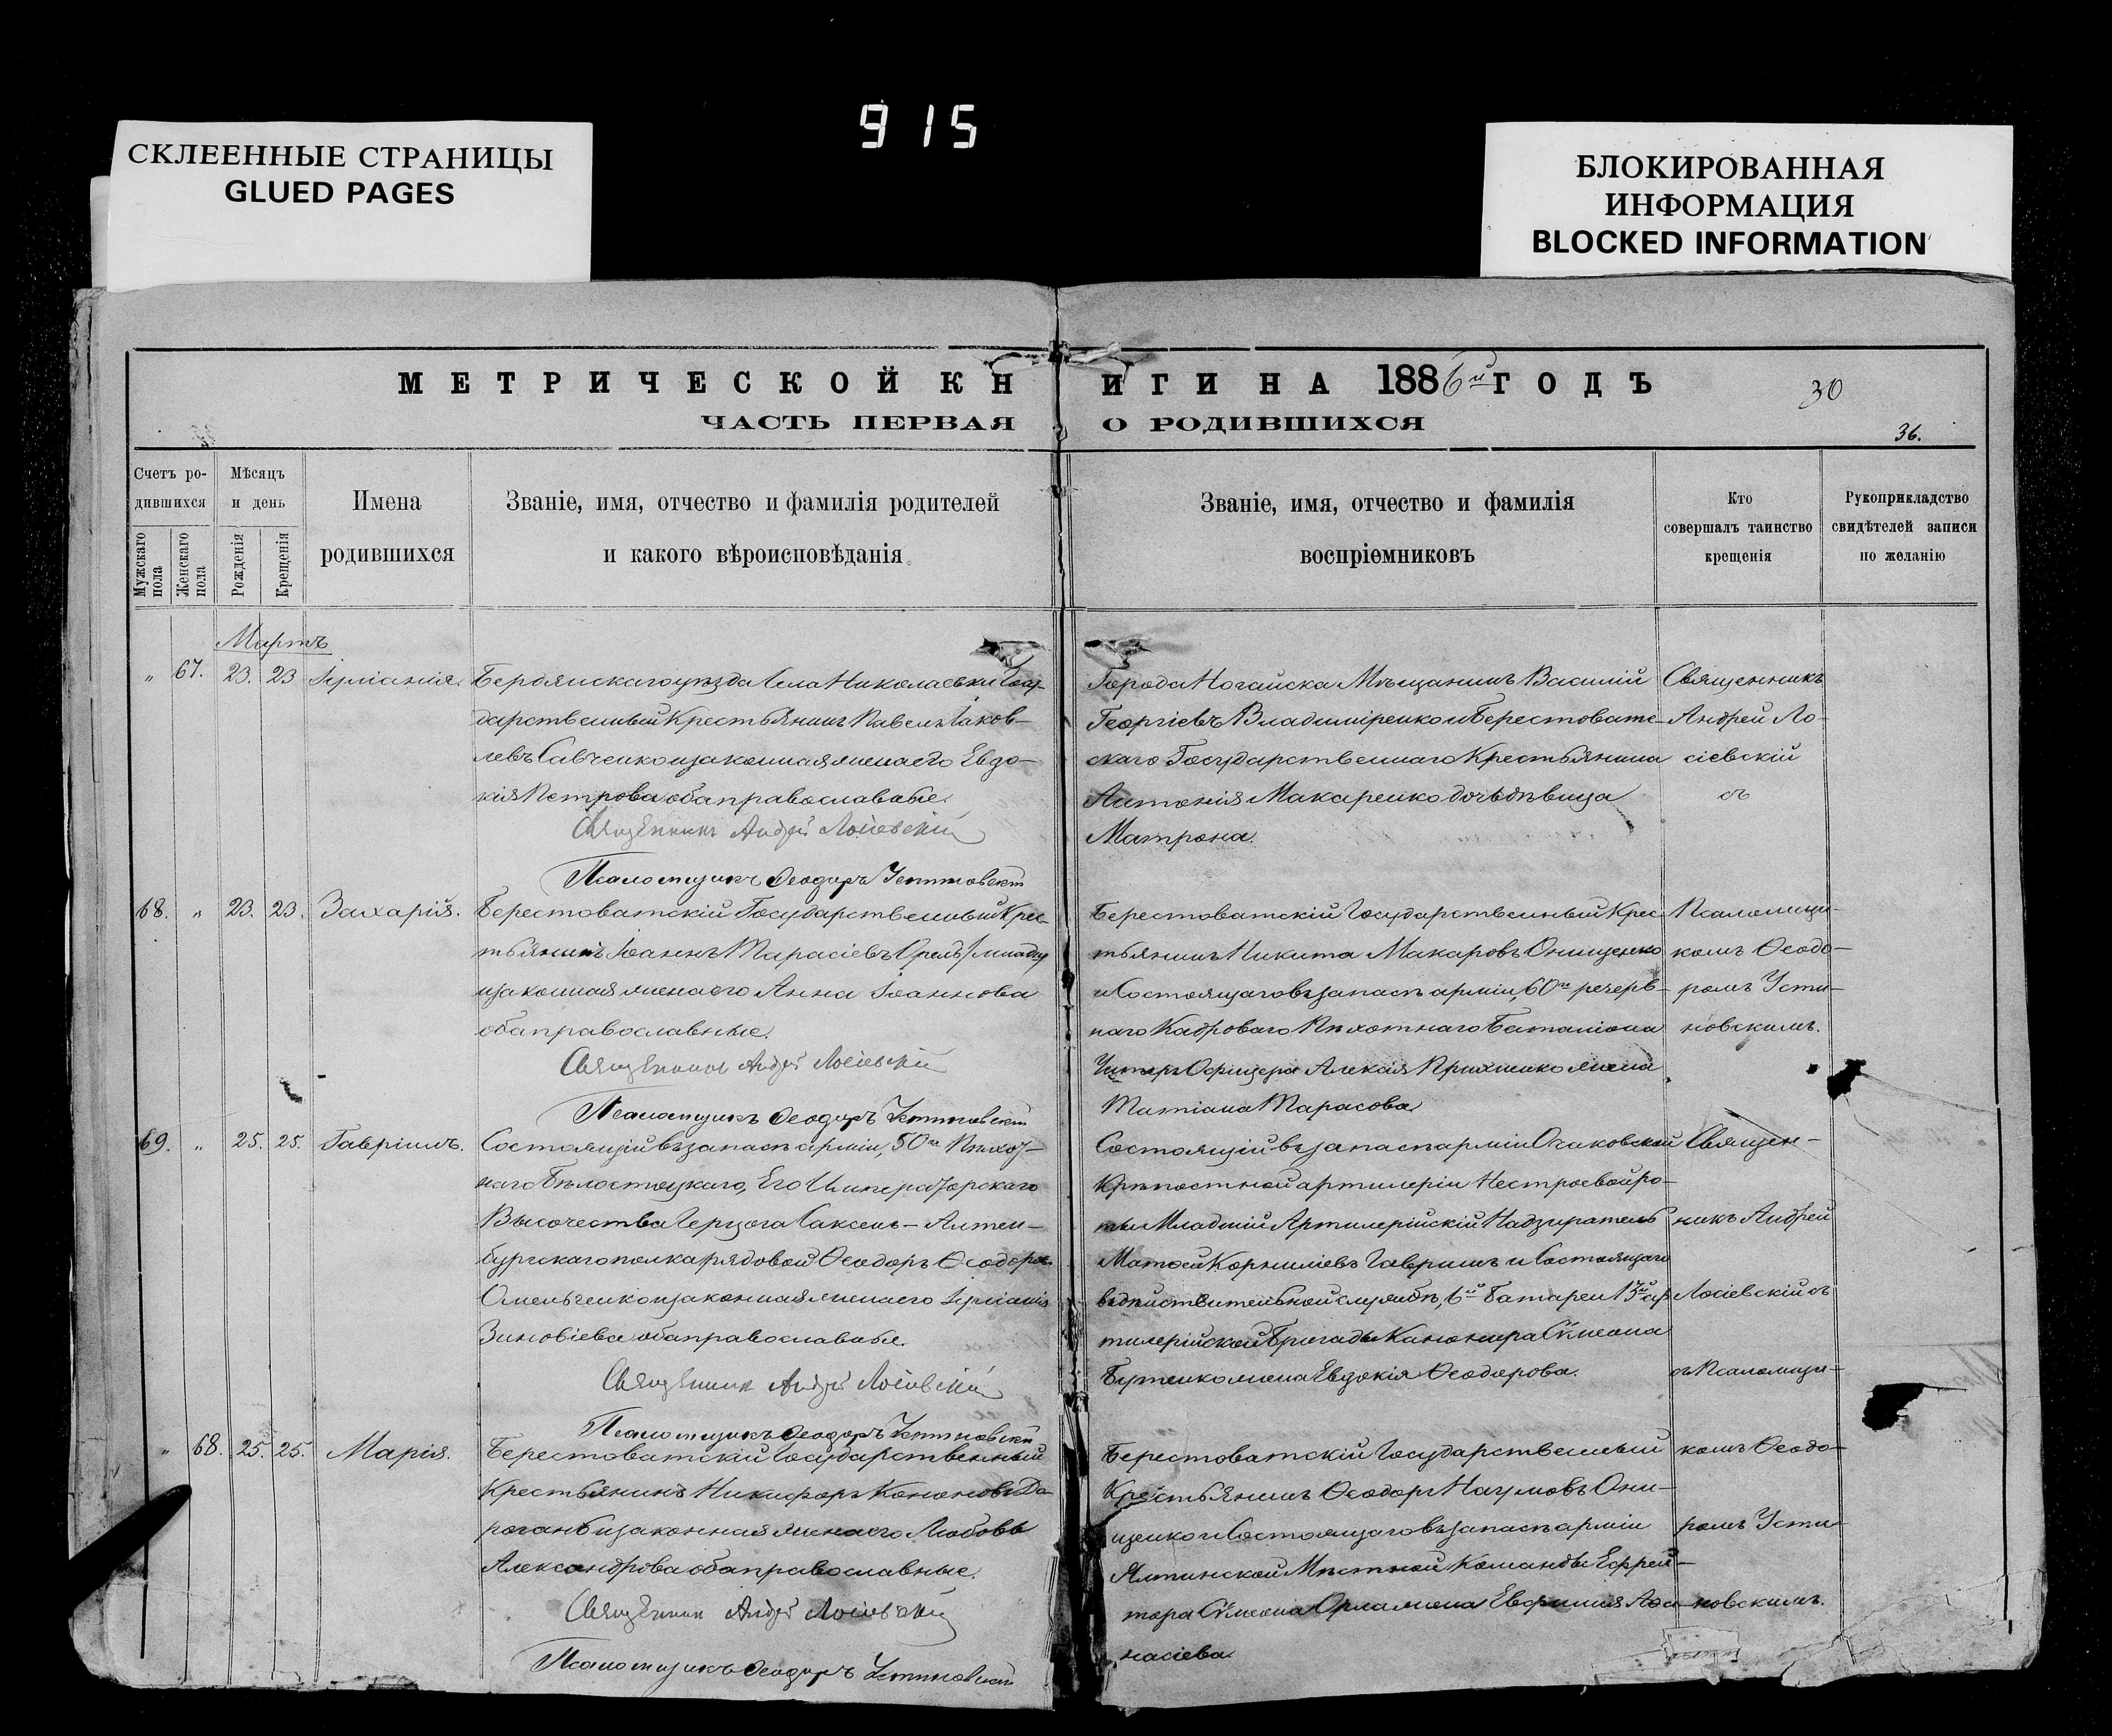 915
СКЛЕЕННЫЕ СТРАНИЦЫ
GLUED PAGES
БЛОКИРОВАННАЯ
ИНФОРМАЦИЯ
BLOCKED INFORMATION
МЕТРИЧЕСКОЙ КНИГИ НА 1886й ГОДЪ
30
ЧАСТЬ ПЕРВАЯ О РОДИВШИХСЯ
36.
Счетъ ро-
дившихся
Мужскаго пола
Женскаго пола
Мѣсяцъ
и день
Рожденія
Крещенія
Имена
родившихся
Званіе, имя, отчество и фамилія родителей
и какого вѣроисповѣданія
Званіе, имя, отчество и фамилія
воспріемниковъ
Кто
совершалъ таинство
крещенія
Рукоприкладство
свидѣтелей записи
по желанію
Мартъ
" 67. 23. 23 Іуліанія.
Бердянскаго уѣзда Села Николаевки Госу-
дарственный Крестьянинъ Павелъ Іаков-
левъ Савченко и законная жена его Евдо-
кія Петрова оба православные.
Священникъ Андрей Лосіевскій
Псаломщикъ Ѳеодоръ Устиновскій
Города Ногайска Мѣщанинъ Василій
Георгіевъ Владиміренко и Берестоват-
скаго Государственнаго Крестьянина
Антонія Макаренко дочь дѣвица
Матрона.
Священникъ
Андрей Ло-
сіевскій
съ
68. " 23. 23. Захарій.
Берестоватскій Государственный Крес-
тьянинъ Іоаннъ Тарасіевъ Орелъ
и законная жена его Анна Іоаннова
оба православные.
Священникъ Андрей Лосіевскій
Псаломщикъ Ѳеодоръ Устиновскій
Берестоватскій Государственный Крес-
тьянинъ Никита Макаровъ Онищенко
и Состоящаго въ запасѣ арміи, 60го резерв-
наго Кадроваго Пѣхотнаго Баталіона
Унтеръ Офицера Алексія жена
Татіана Тарасова.
Псаломщи-
комъ Ѳеодо-
ромъ Усти-
новскимъ.
69. " 25. 25. Гавріилъ.
Состоящій въ запасѣ арміи, 50го Пѣхот-
наго Бѣлостоцкаго, Его Императорскаго
Высочества Герцога Саксенъ-Альтен-
бургскаго полка рядовой Ѳеодоръ Ѳеодоровъ
Омельченко и законная жена его Іуліанія
Зиновіева оба православные.
Священникъ Андрей Лосіевскій
Псаломщикъ Ѳеодоръ Устиновскій
Состоящій въ запасѣ арміи Очаковской
Крѣпостной артилеріи Нестроевой ро-
ты Младшій Артилерійскій Надзиратель
Матѳей Корниліевъ Гавришъ и Состоящаго
въ дѣйствительной службѣ, 6й Батареи 13й ар-
тилерійской Бригады Канонира Сѵмеона
Бутенко жена Евдокія Ѳеодорова.
Священ-
никъ Андрей
Лосіевскій съ
съ Псаломщи-
" 68. 25. 25. Марія.
Берестоватскій Государственный
Крестьянинъ Никифоръ Кононовъ До-
рогань и законная жена его Любовь
Александрова оба православные.
Священникъ Андрей Лосіевскій
Псаломщикъ Ѳеодоръ Устиновскій
Берестоватскій Государственный
Крестьянинъ Ѳеодоръ Наумовъ Они-
щенко и Состоящаго въ запасѣ арміи
Ялтинской Мѣстной Команды Ефрей-
тора Сѵмеона Орла жена Евфимія Аѳа-
насіева.
комъ Ѳеодо-
ромъ Усти-
новскимъ.